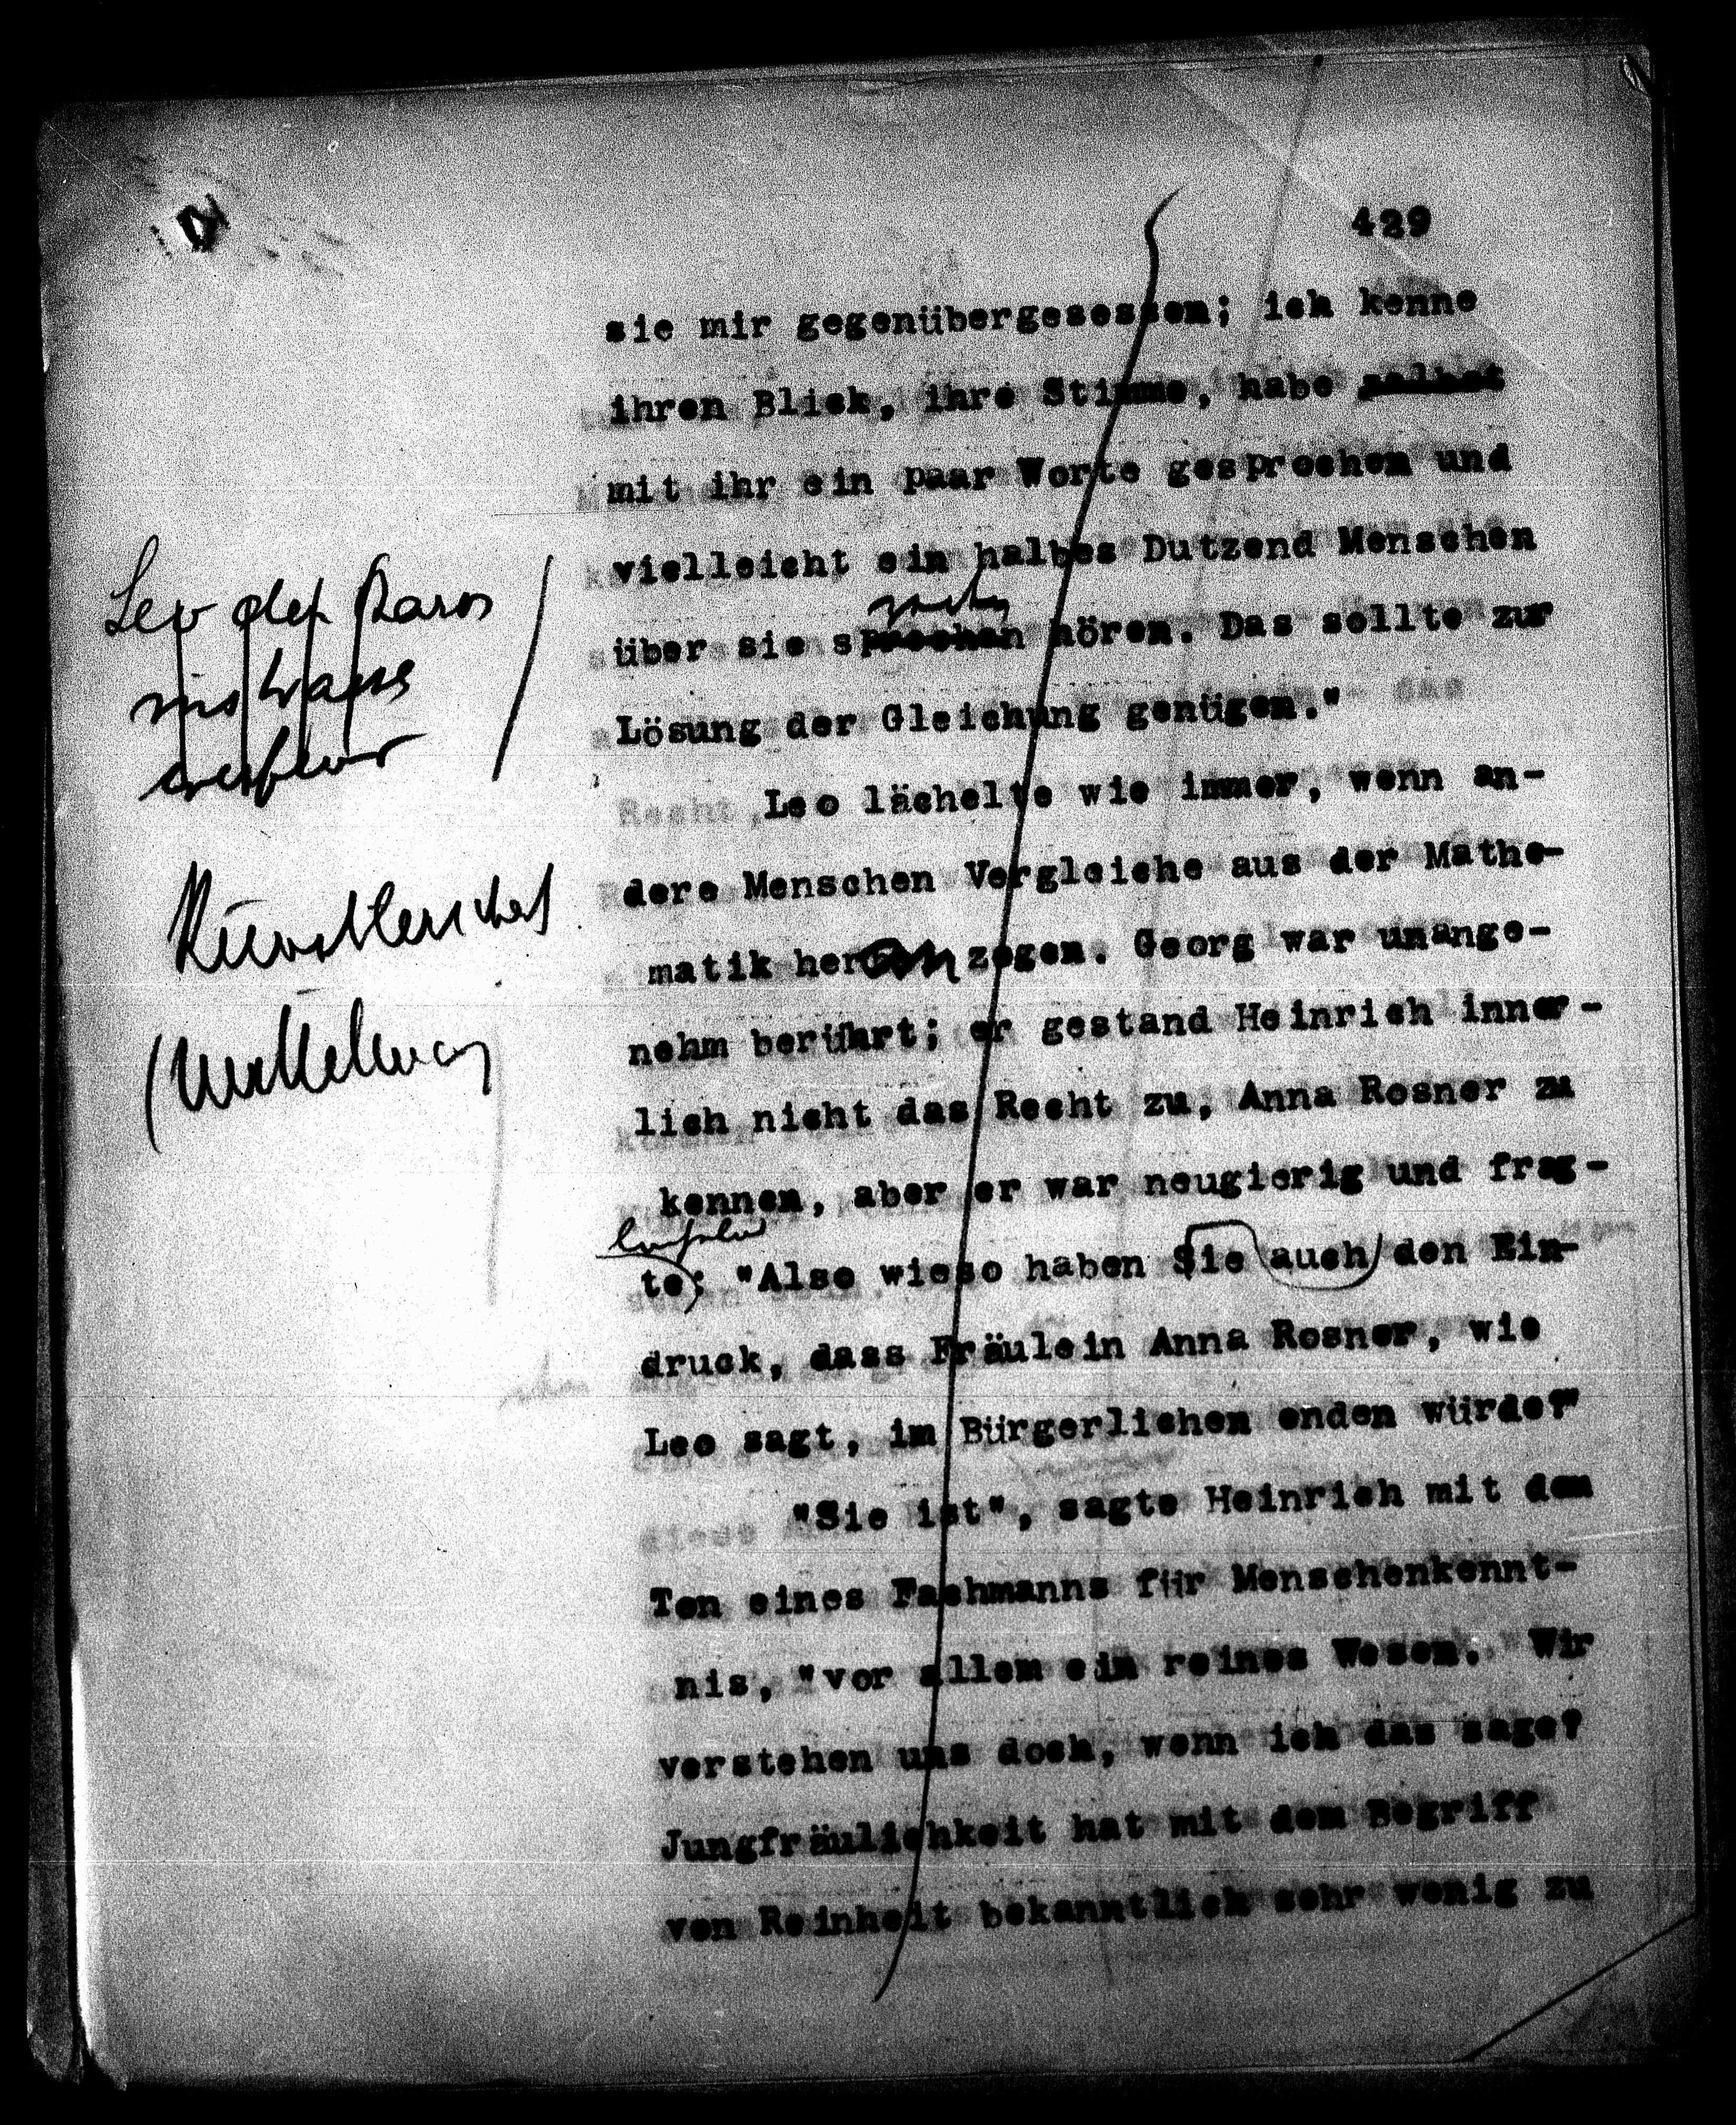 429
sie mir gegenübergesessen; ich kenne
ihren Blick, ihre Stimme, habe selbst
mit ihr ein paar Worte gesprochen und
vielleicht ein halbes Dutzend Menschen
über sie sprechen hören. Das sollte zur
Lösung der Gleichung genügen."
Leo lächelte wie immer, wenn an-
dere Menschen Vergleiche aus der Mathe-
matik heranzogen. Georg war unange-
nehm berührt; er gestand Heinrich inner-
lich nicht das Recht zu, Anna Rosner zu
kennen, aber er war neugierig und frag-
te: "Also wieso haben Sie auch den Ein-
druck, dass Fräulein Anna Rosner, wie
Leo sagt, im Bürgerlichen enden würde?"
"Sie ist", sagte Heinrich mit dem
Ton eines Fachmanns für Menschenkennt-
nis, "vor allem ein reines Wesen. Wir
verstehen uns doch, wenn ich das sage?
Jungfräulichkeit hat mit dem Begriff
von Reinheit bekanntlich sehr wenig zu
Leo